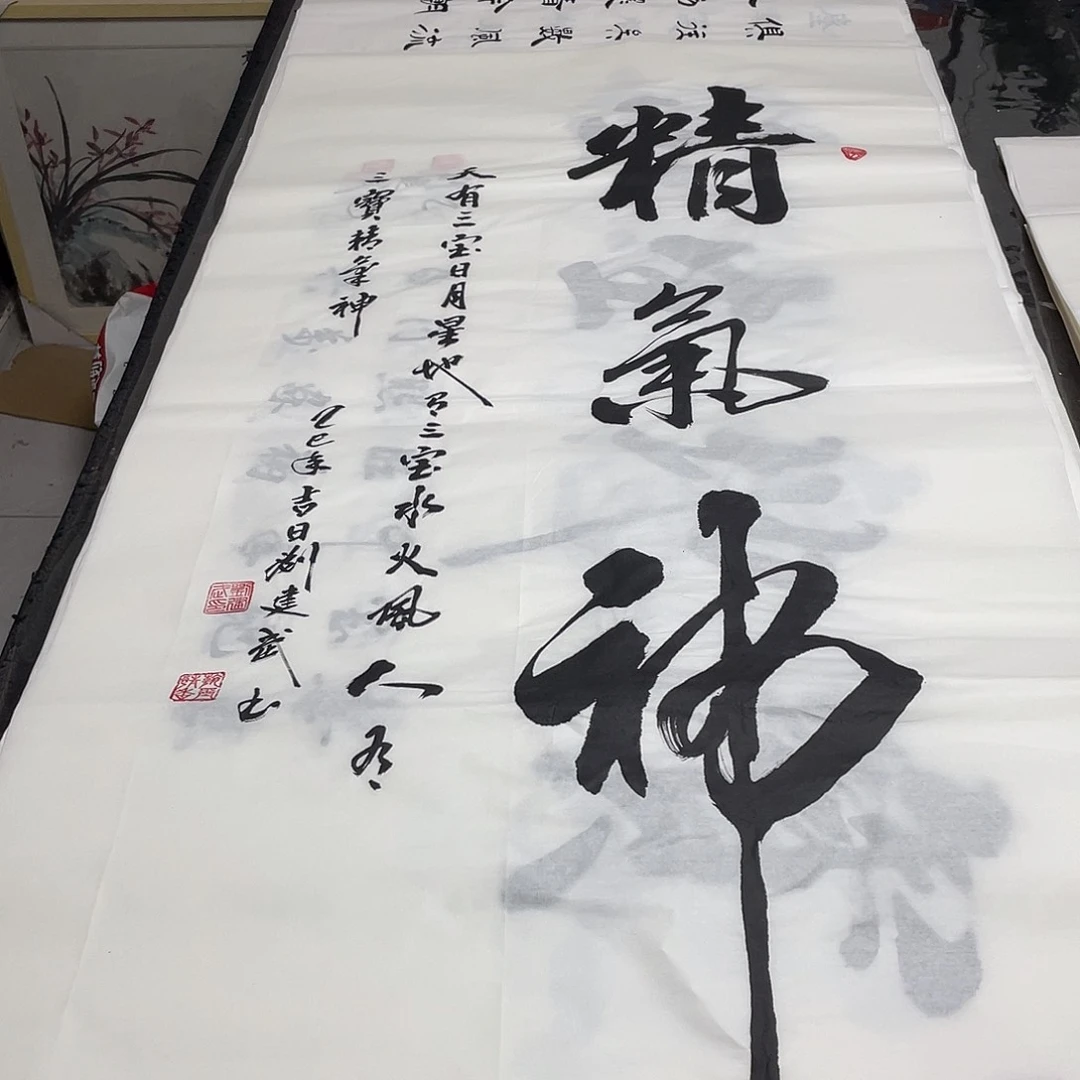 精氣神
天有三宝日月星地有三宝水火風人有
三寳精氣神
乙巳年吉日劉建武书